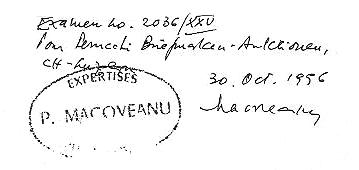 Examen no. 2036/XXV
Pour Demeti Briefmarken-Auktionen,
CH-Luzern
30. Oct. 1996
EXPERTISES
P. MACOVEANU
Macoveanu